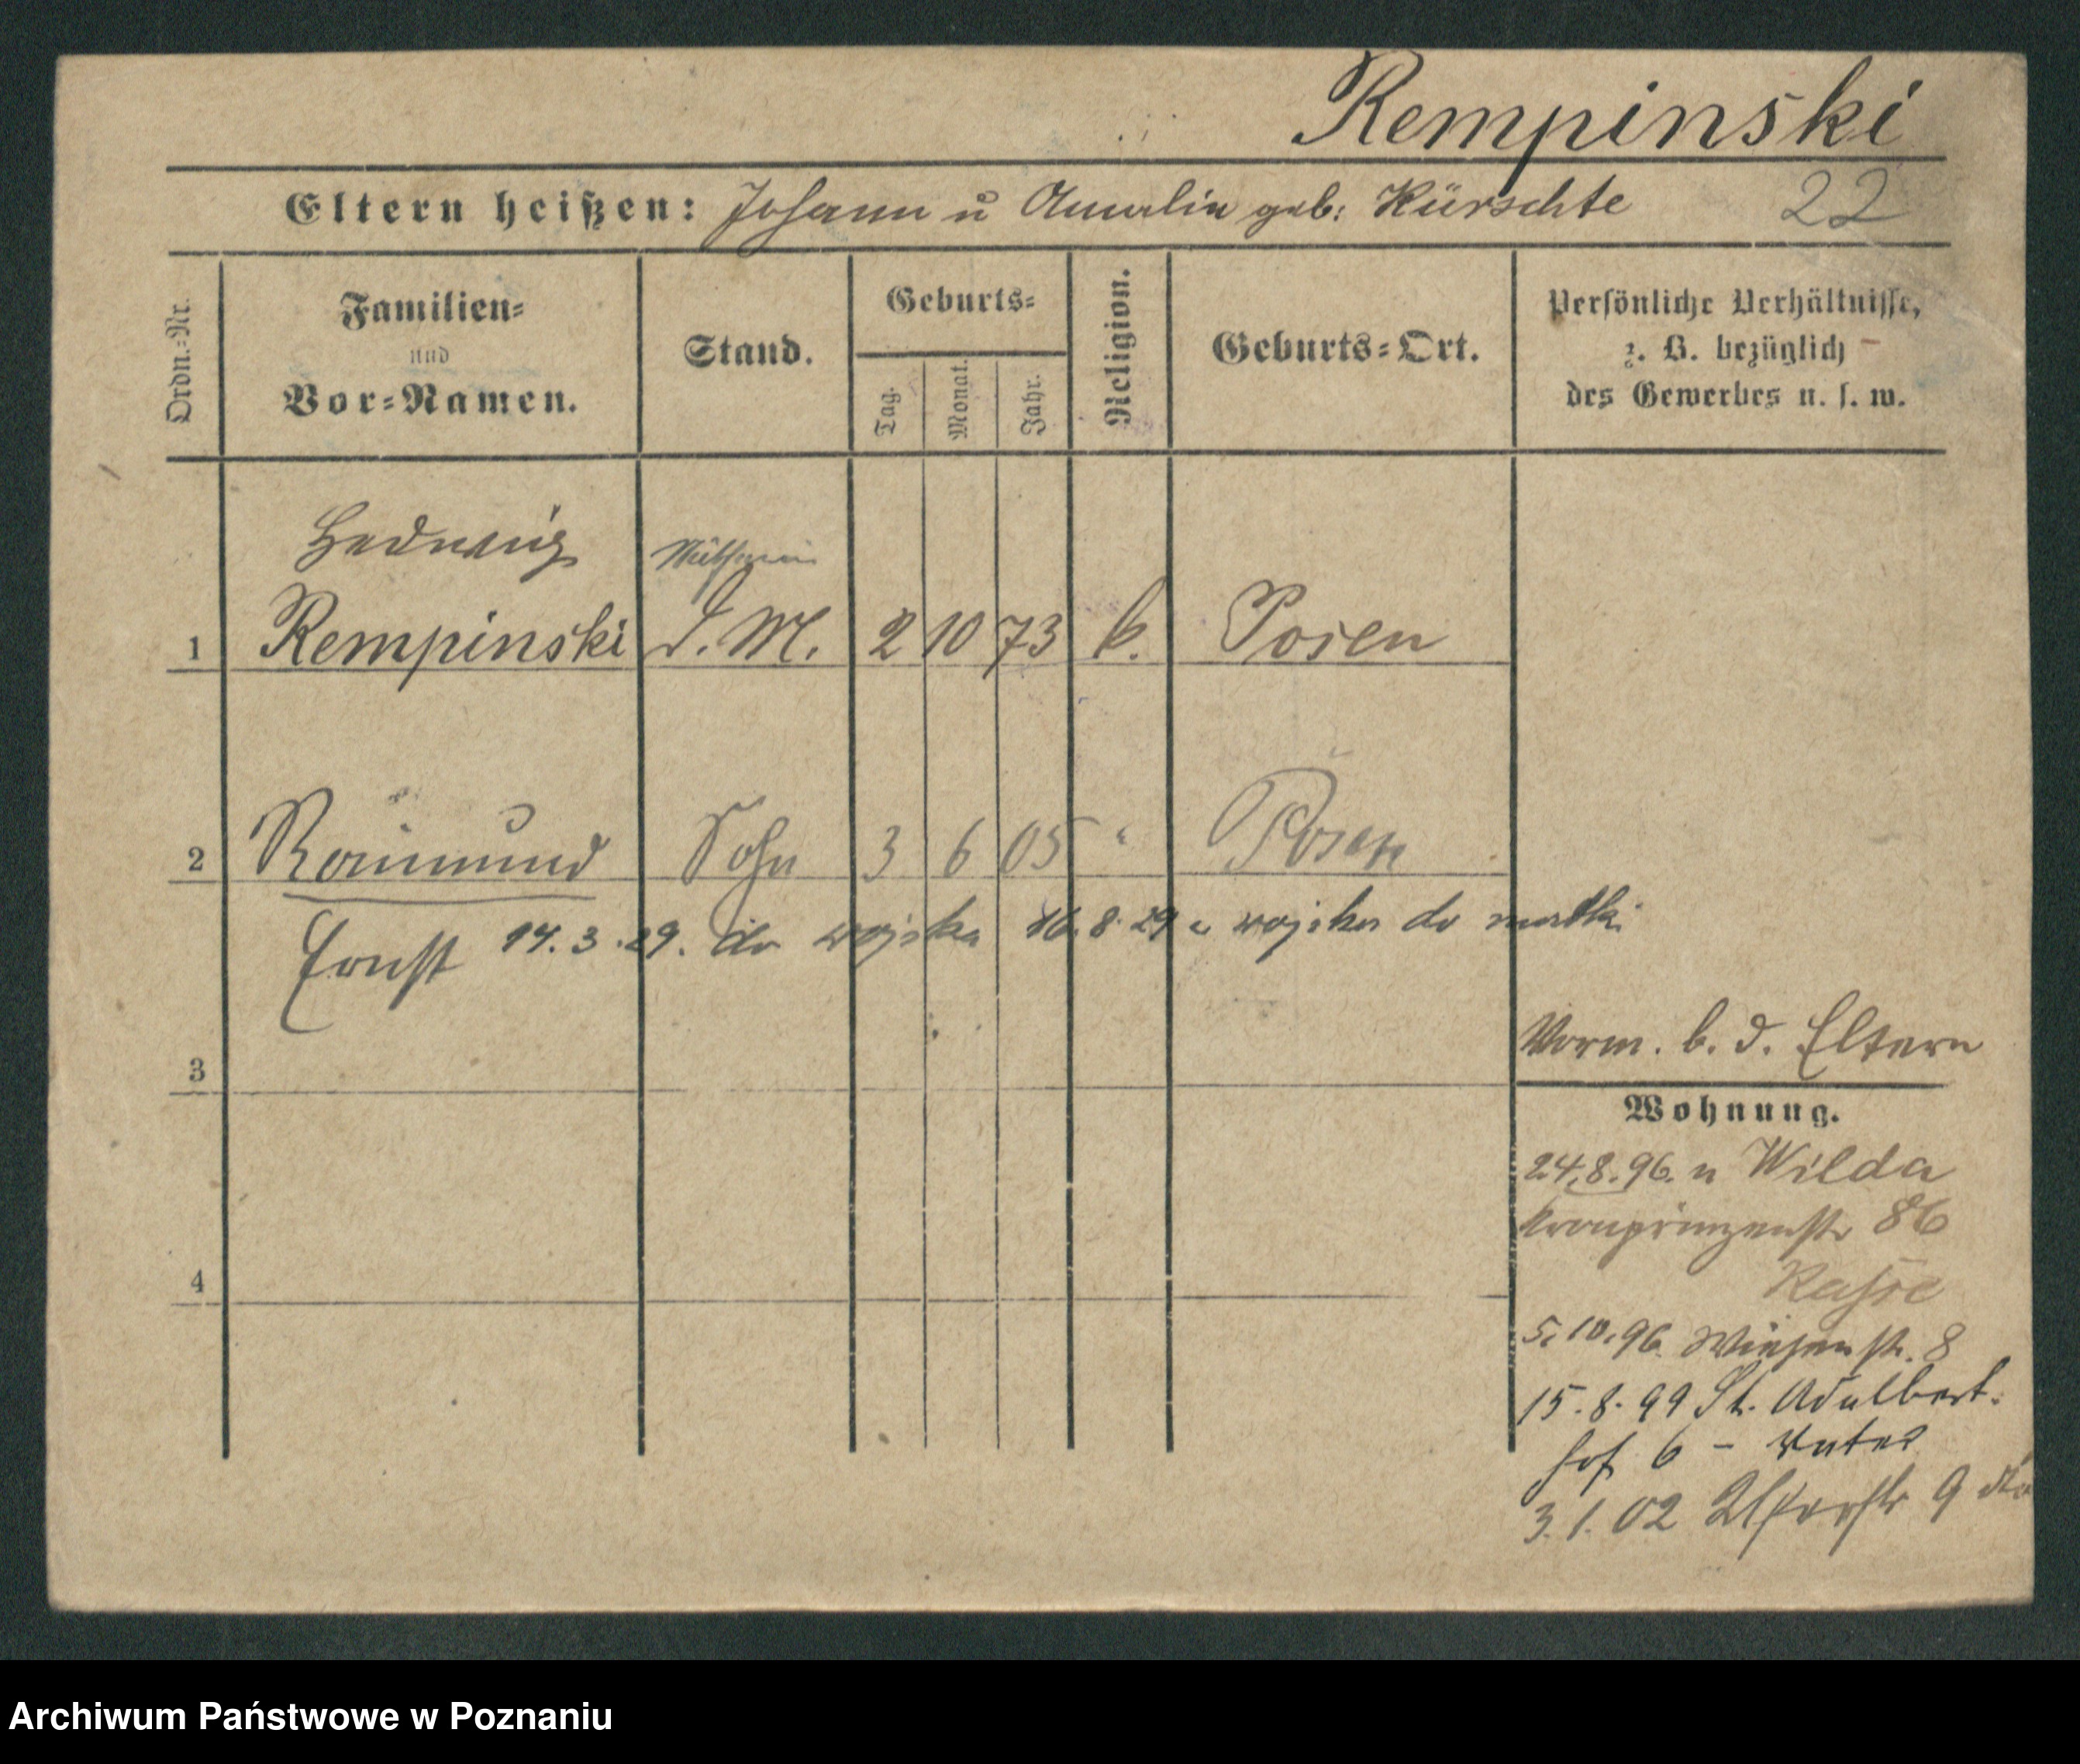 Rempinski
Eltern heißen: Johann u Amalie geb: Kürschke 22
Ordn.=Nr.
Familien=
und
Vor=Namen.
Stand.
Geburts=
Tag.
Monat.
Jahr.
Religion.
Geburts=Ort.
Persönliche Verhältnisse,
z. B. bezüglich
des Gewerbes u. s. w.
Hedwig
1 Rempinski D. M. 2 10 73 k. Posen
2 Raimund Sohn 3 6 05 " Posen
Ernst 14.3.29. do wojska 16.8.29 z wojska do matki
3
Vorm. b. d. Eltern
Wohnung.
24.8.96. n Wilda
Kronprinzenstr 86
4
5.10.96. Wiesenstr. 8
15.8.99 St. Adalbert.
hof 6 – Vater
3.1.02 9 dto
Archiwum Państwowe w Poznaniu